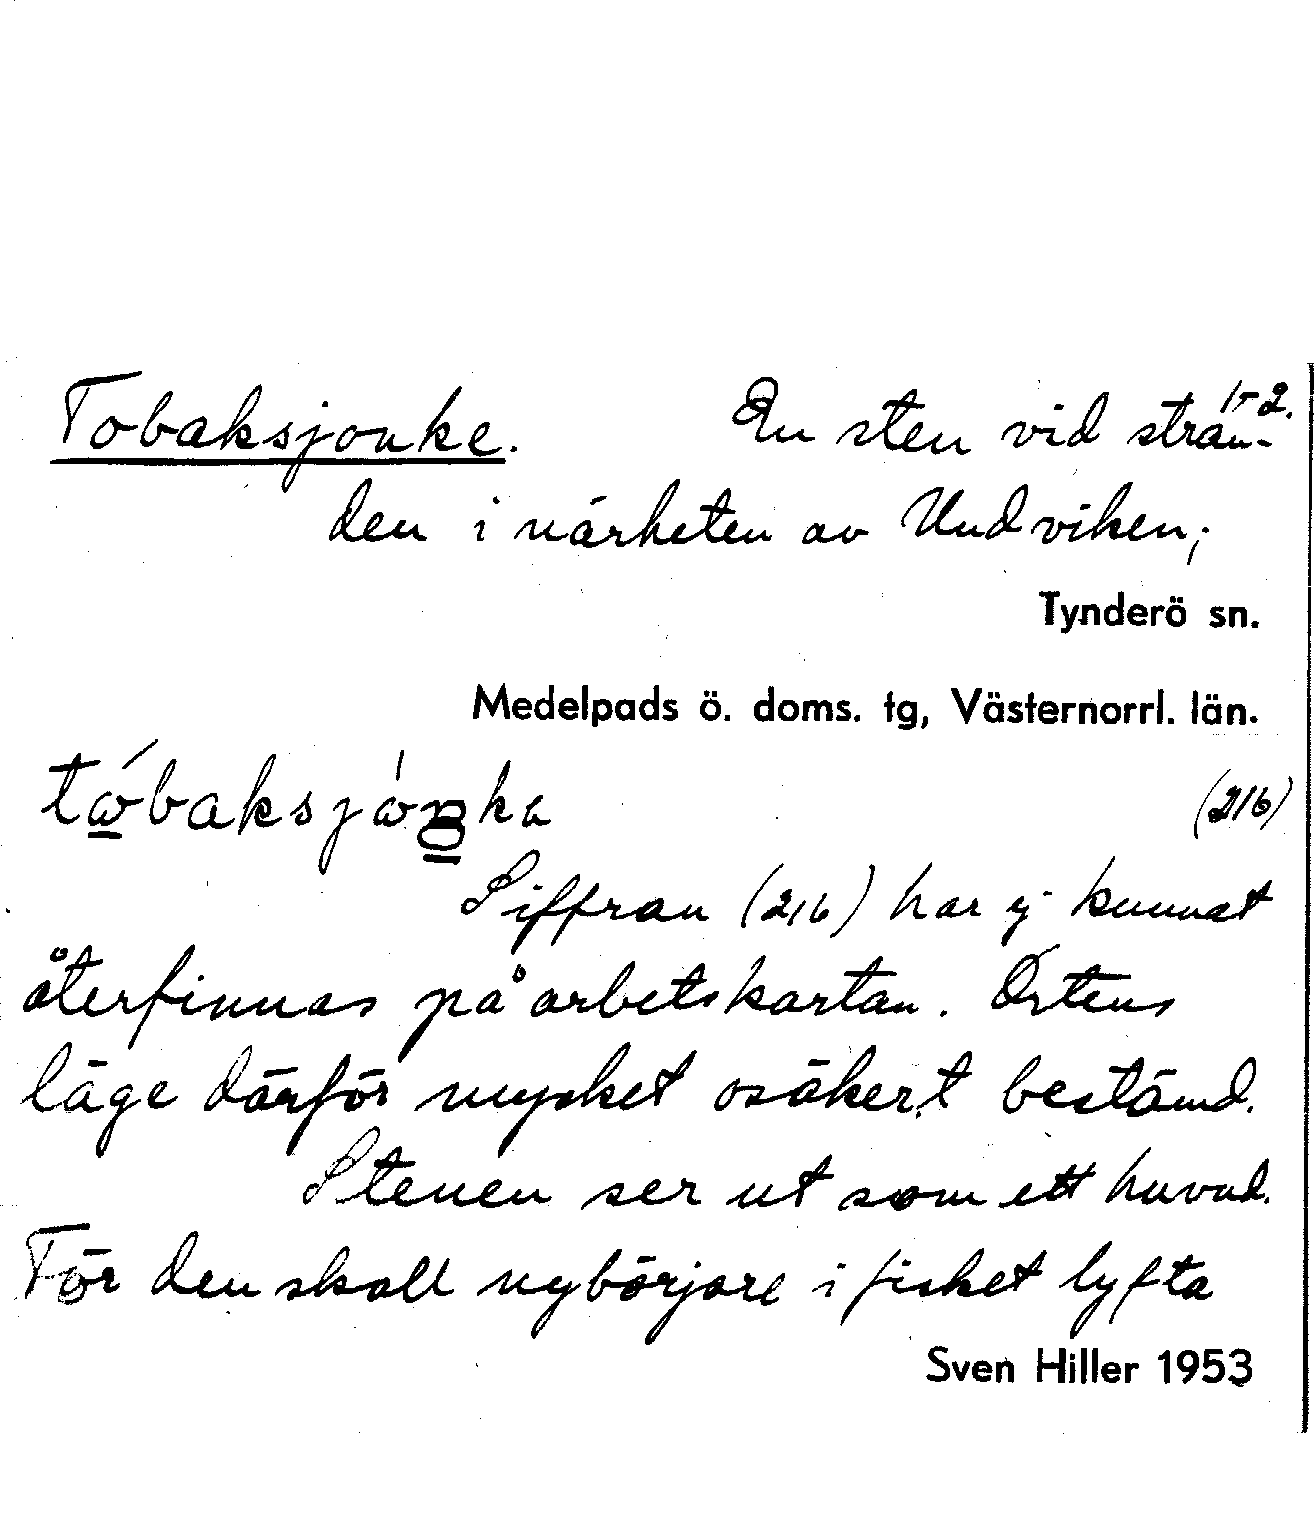 1-2.
Tobaksjonke. En sten vid stran-
den i närheten av Undviken;
Tynderö sn.
Medelpads ö. doms. tg, Västernorrl. län.
(216)
Siffran (216) har ej kunnat
återfinnas på arbetskartan. Ortens
läge därför mycket osäkert bestämd.
Stenen ser ut som ett huvud.
För den skall nybörjare i fisket lyfta
Sven Hiller 1953